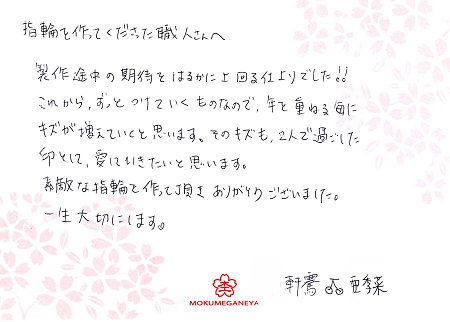 指輪を作ってくださった職人さんへ
製作途中の期待をはるかに上回る仕上りでした!!
これから、ずっとつけていくものなので、年を重ねる毎に
キズが増えていくと思います。そのキズも、2人で過ごした
印として、愛しておきたいと思います。
素敵な指輪を作って頂き ありがとうございました。
一生大切にします。
亜季菜
MOKUMEGANEYA